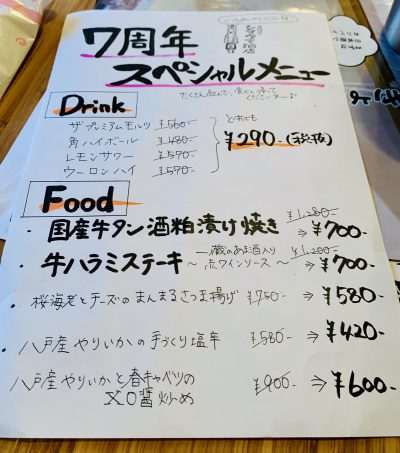 7周年
スペシャルメニュー
たくさん飲んで、食べて帰って
くださいネー♪
Drink
ザ・プレミアムモルツ ¥560-
角ハイボール ¥480-
レモンサワー ¥570-
ウーロンハイ ¥570-
どれでも
¥290-(税抜)
Food
・国産牛タン酒粕漬け焼き ¥1,280- ⇒ ¥700-
・牛ハラミステーキ ¥1,200- ⇒ ¥700-
・桜海老とチーズのまんまるさつま揚げ ¥750- ⇒ ¥580-
・八戸産やりいかの手づくり塩辛 ¥580- ⇒ ¥420-
・八戸産やりいかと春キャベツの
XO醤炒め ¥900- ⇒ ¥600-